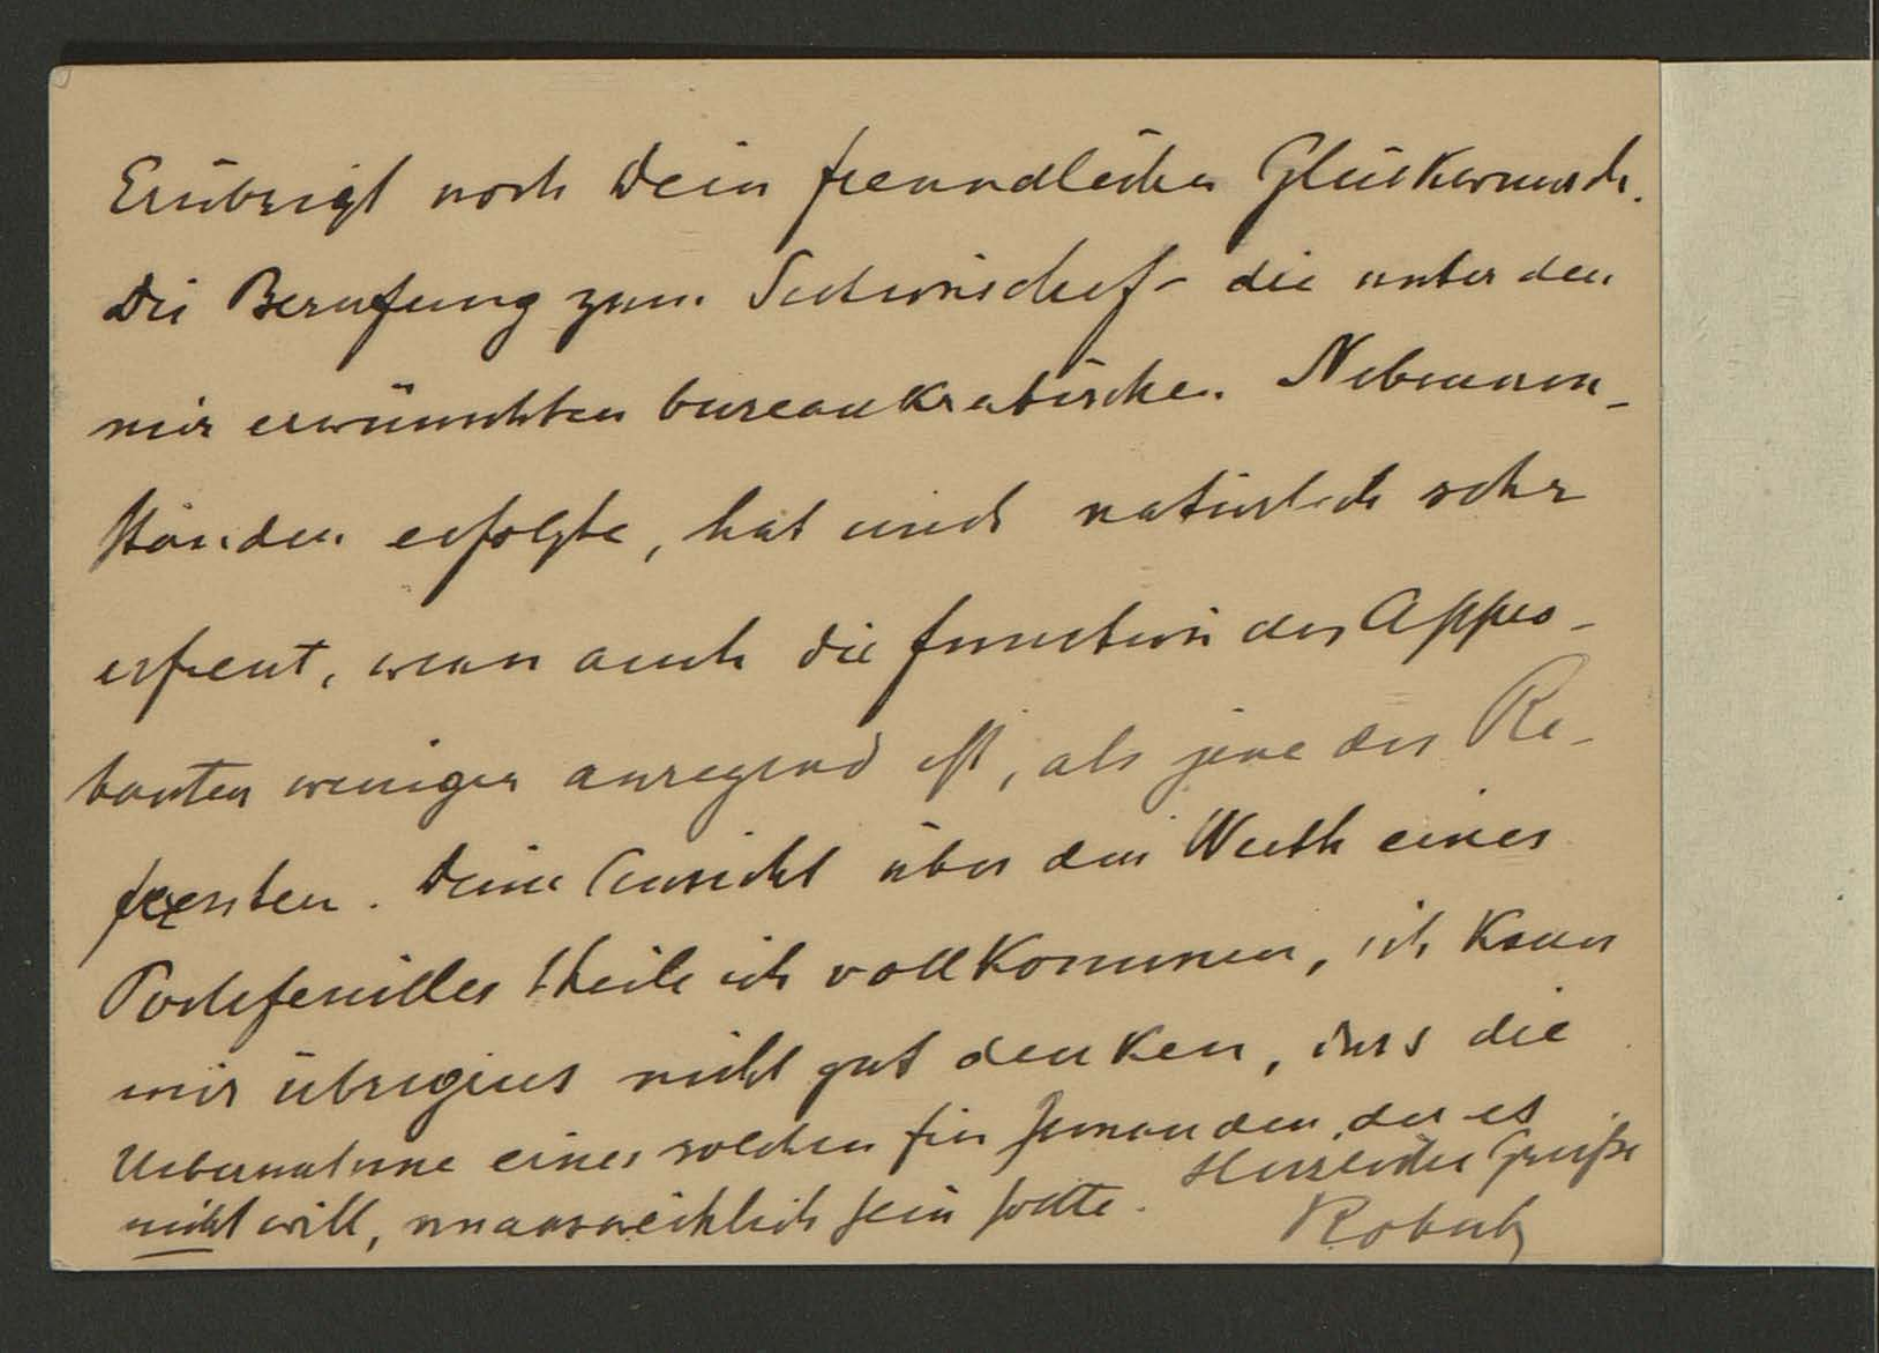 Erübrigt noch Dein freundlicher Glückwunsch.
Die Berufung zum Sectionschef – die unter den
mir erwünschten bureaukratischen Nebenum-
ständen erfolgte, hat mich natürlich sehr
erfreut, wenn auch die function des Appro-
banten weniger anregend ist, als jene des Re-
ferenten. Deine Ansicht über den Werth eines
Portefeuilles theile ich vollkommen, ich kann
mir übrigens nicht gut denken, dass die
Uebernahme eines solchen für Jemanden, der es
nicht will, unausweichlich sein sollte.
Herzliche Grüße
Robert